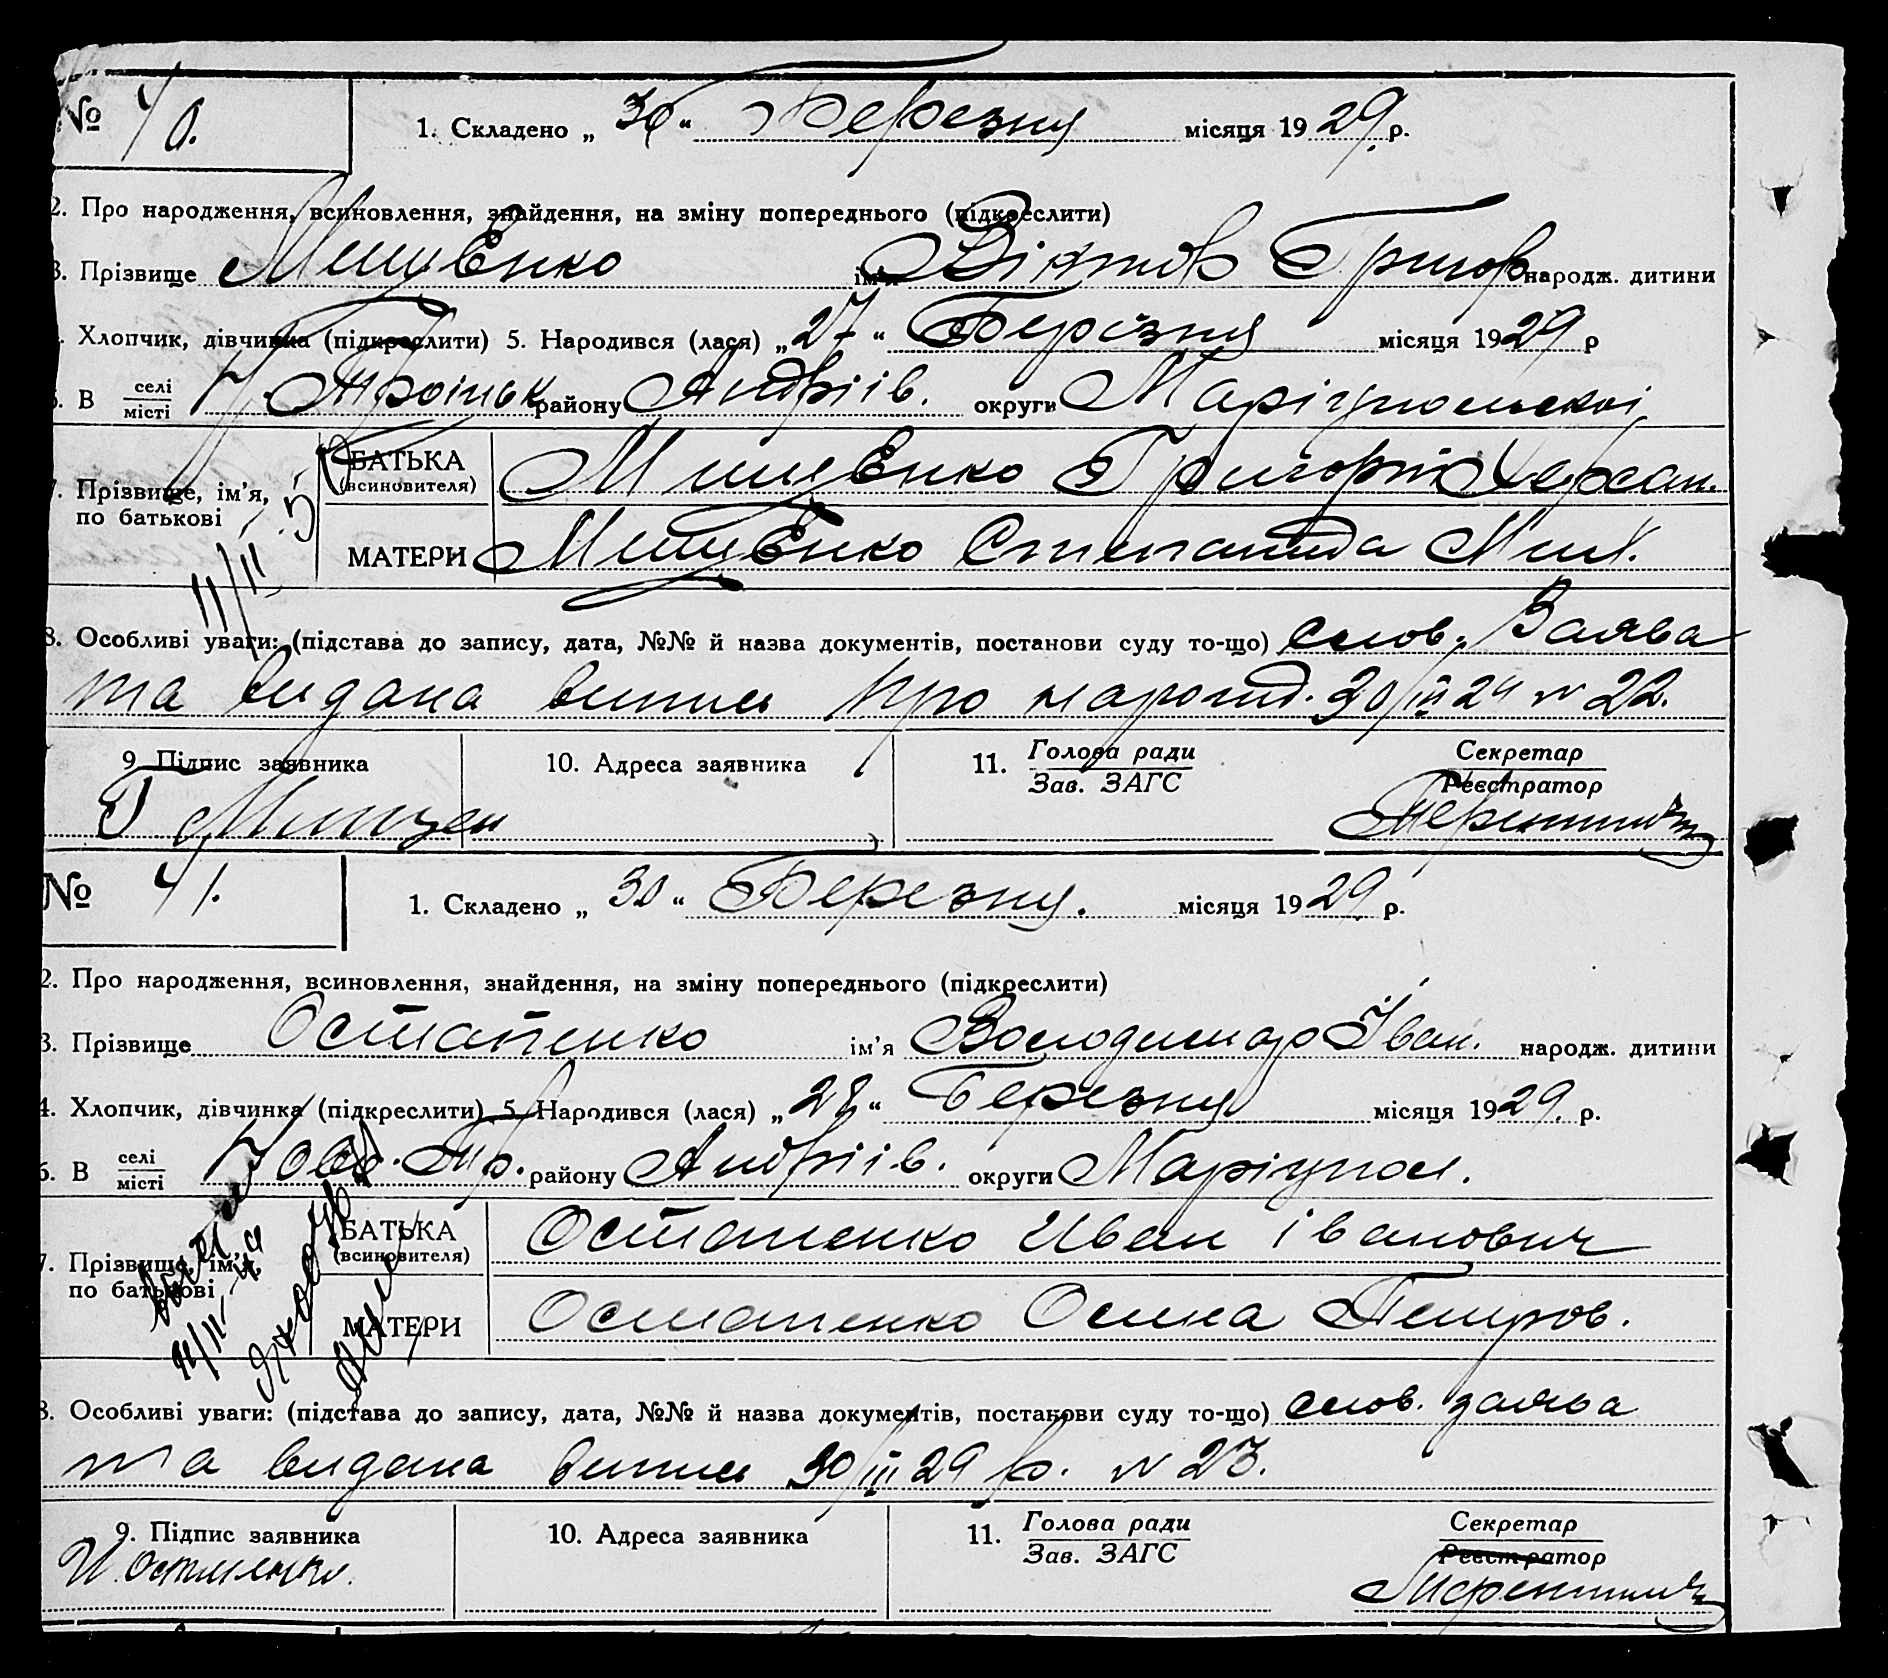 № 40.
1. Складено „ 30 “ Березня місяця 1929 р.
2. Про народження, всиновлення, знайдення, на зміну попереднього (підкреслити)
3. Прізвище Мищенко ім'я Віктор Григор народж. дитини
Хлопчик, дівчинка (підкреслити) 5. Народився (лася) „ 27 “ Березня місяця 1929 р
В селі місті Н. Троїцьк району Андріїв. округи Маріупольскої
7. Прізвище, ім'я, по батькові
БАТЬКА (всиновителя) Мищенко Григорій
МАТЕРИ Мищенко Степанида Мих.
11/II
8. Особливі уваги: (підстава до запису, дата, №№ й назва документів, постанови суду то-що) слов. Заява
та видана випись про народ. 30/III 29 N 22.
9 Підпис заявника 10. Адреса заявника 11. Голова ради Зав. ЗАГС Секретар Реєстратор
Г Мищен
№ 41.
1. Складено „ 30 “ Березня. місяця 1929 р.
2. Про народження, всиновлення, знайдення, на зміну попереднього (підкреслити)
3. Прізвище Остапенко ім'я Володимир Іван. народж. дитини
4. Хлопчик, дівчинка (підкреслити) 5. Народився (лася) „ 28 “ Березня місяця 1929. р.
6. В селі місті Ново. Тр. району Андріїв. округи Маріупол.
7. Прізвище, ім'я, по батькові
БАТЬКА (всиновителя) Остапенко Иван Іванович
МАТЕРИ Остапенко Петров.
8. Особливі уваги: (підстава до запису, дата, №№ й назва документів, постанови суду то-що) слов. заява
та видана випись 30/III 29 р. N 23.
9. Підпис заявника 10. Адреса заявника 11. Голова ради Зав. ЗАГС Секретар Реєстратор
И. Остапенко.